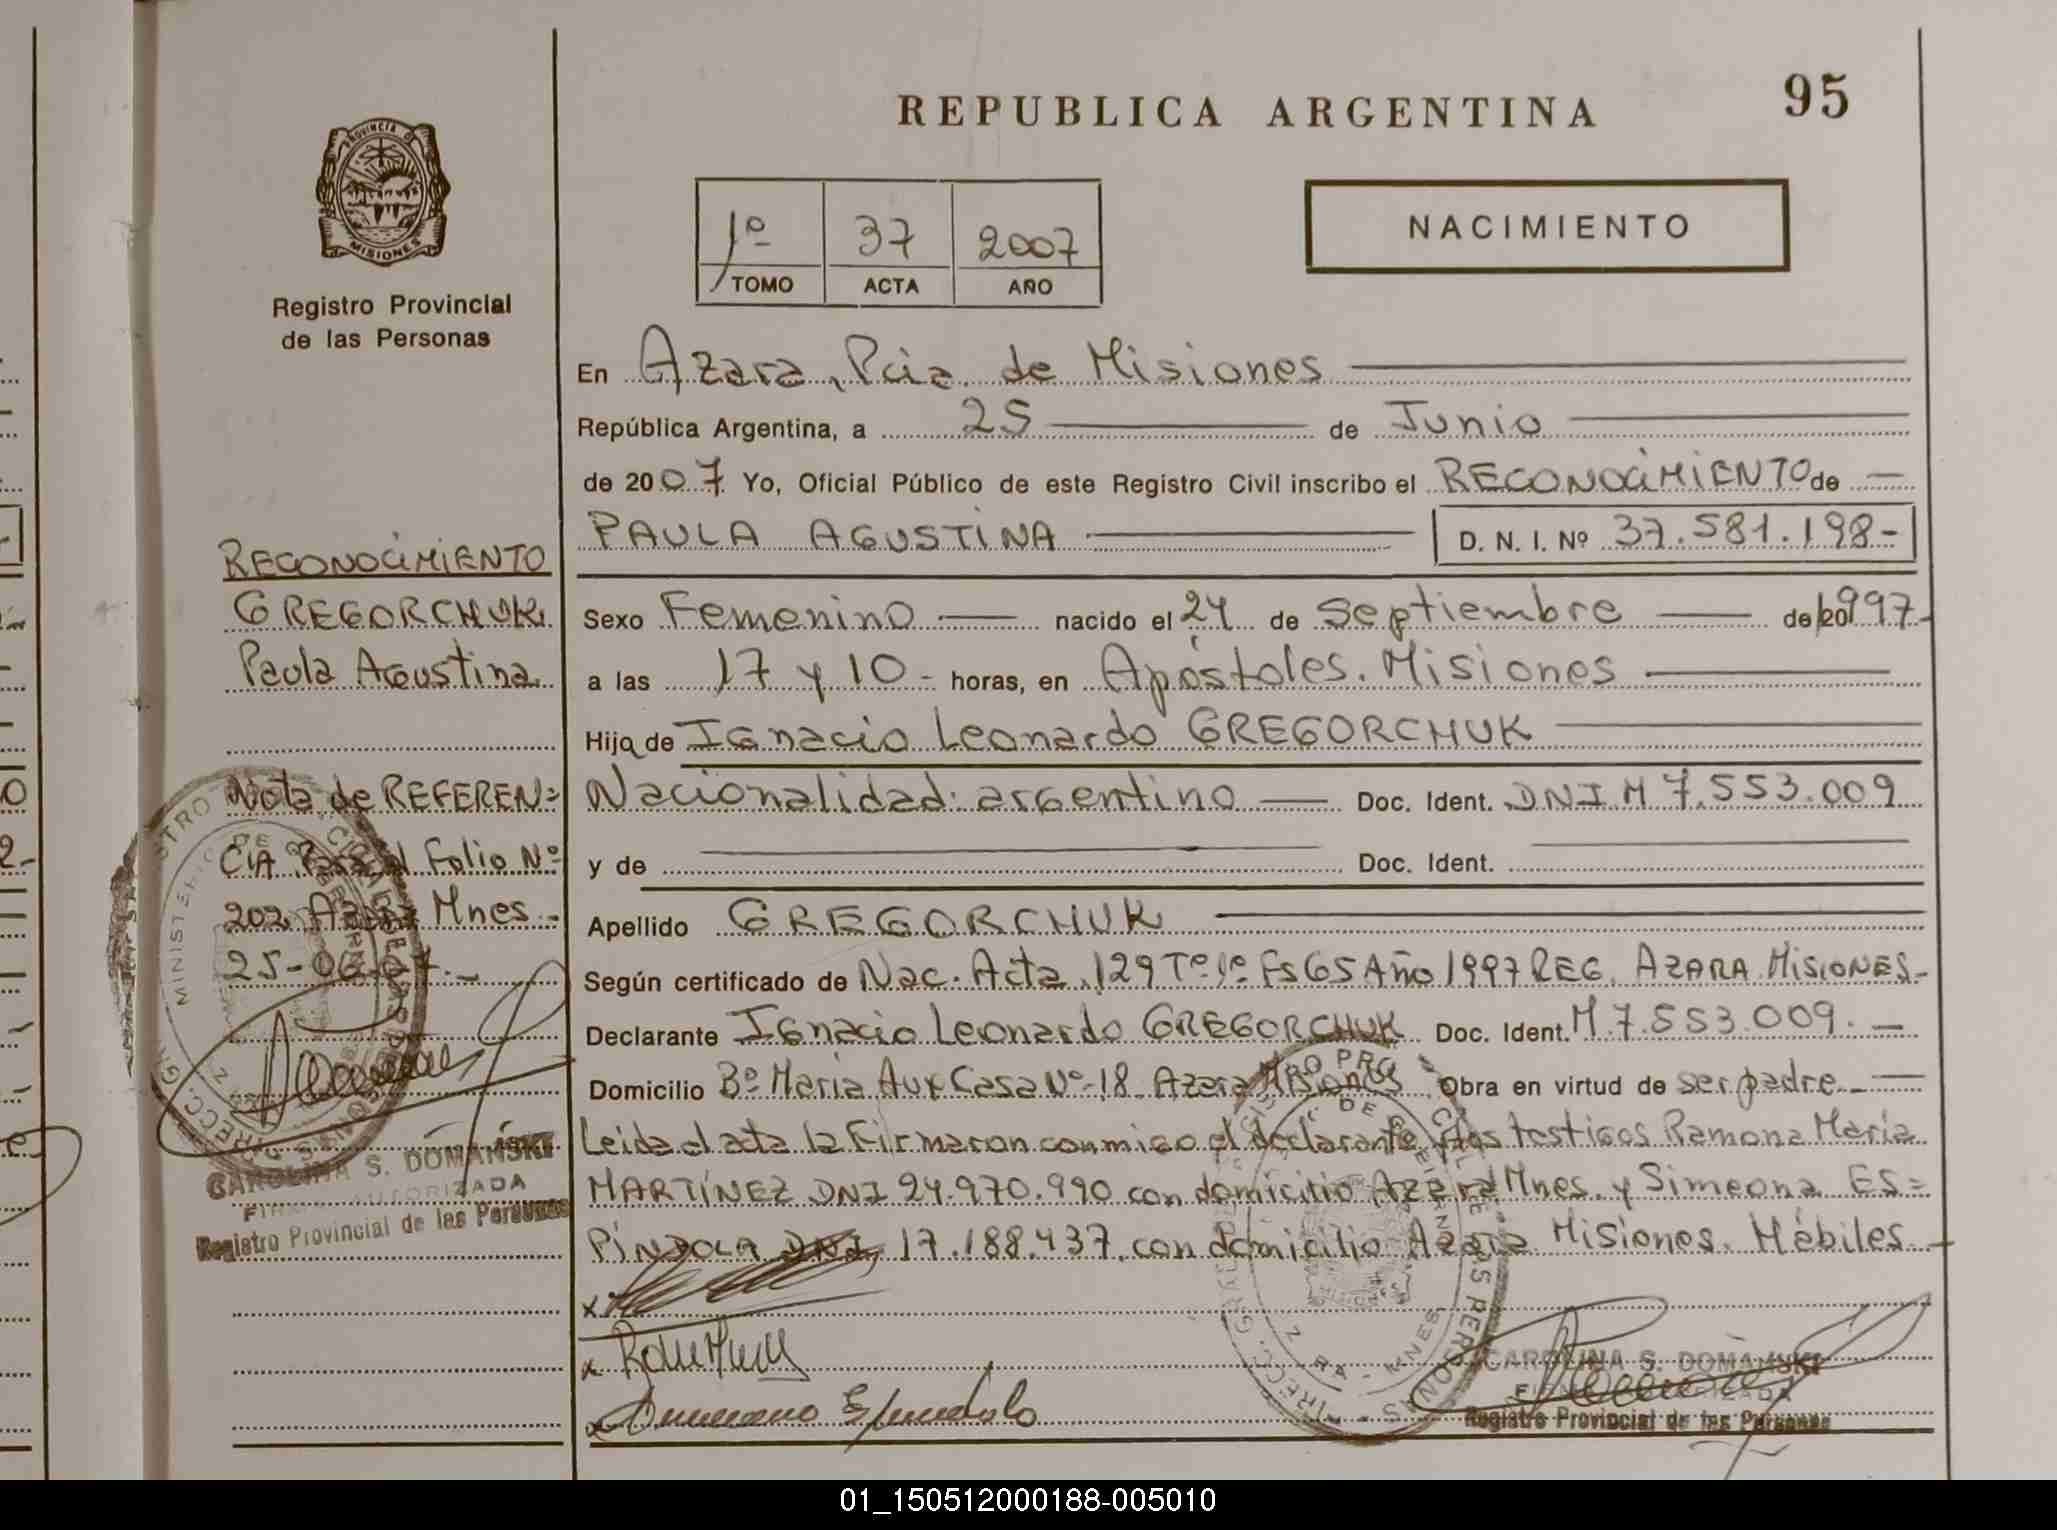 REPUBLICA ARGENTINA
95
PROVINCIA DE
MISIONES
Registro Provincial
de las Personas
1º 37 2007
TOMO ACTA AÑO
NACIMIENTO
En Azara, Pcia. de Misiones
República Argentina, a 25 de Junio
de 2007 Yo, Oficial Público de este Registro Civil inscribo el RECONOCIMIENTO de
PAULA AGUSTINA D. N. I. Nº 37.581.198-
Sexo Femenino nacido el 24 de Septiembre de 20 1997-
a las 17 y 10- horas, en Apóstoles. Misiones
Hija de Ignacio Leonardo GREGORCHUK
Nacionalidad: argentino Doc. Ident. DNI M 7.553.009
y de Doc. Ident.
Apellido GREGORCHUK
Según certificado de Nac. Acta 129 Tº 1º Fs 65 Año 1997 REG. AZARA MISIONES-
Declarante Ignacio Leonardo GREGORCHUK Doc. Ident. M 7.553.009.-
Domicilio Bº María Aux Casa Nº 18 Azara Misiones Obra en virtud de ser padre
Leida el acta la Firmaron conmigo el declarante y los testigos Ramona María
MARTÍNEZ DNI 24.970.990 con domicilio Azara Mnes. y Simeona ES=
PÍNDOLA DNI 17.188.437. con domicilio Azara Misiones. Hábiles.
x
x
x Espindola
CAROLINA S. DOMANSKI
FIRMA AUTORIZADA
Registro Provincial de las Personas
RECONOCIMIENTO
GREGORCHUK
Paula Agustina
Nota de REFEREN=
CIA Pasa al Folio Nº
202 Azara Mnes.-
25-06-07.-
CAROLINA S. DOMANSKI
FIRMA AUTORIZADA
Registro Provincial de las Personas
01_150512000188-005010